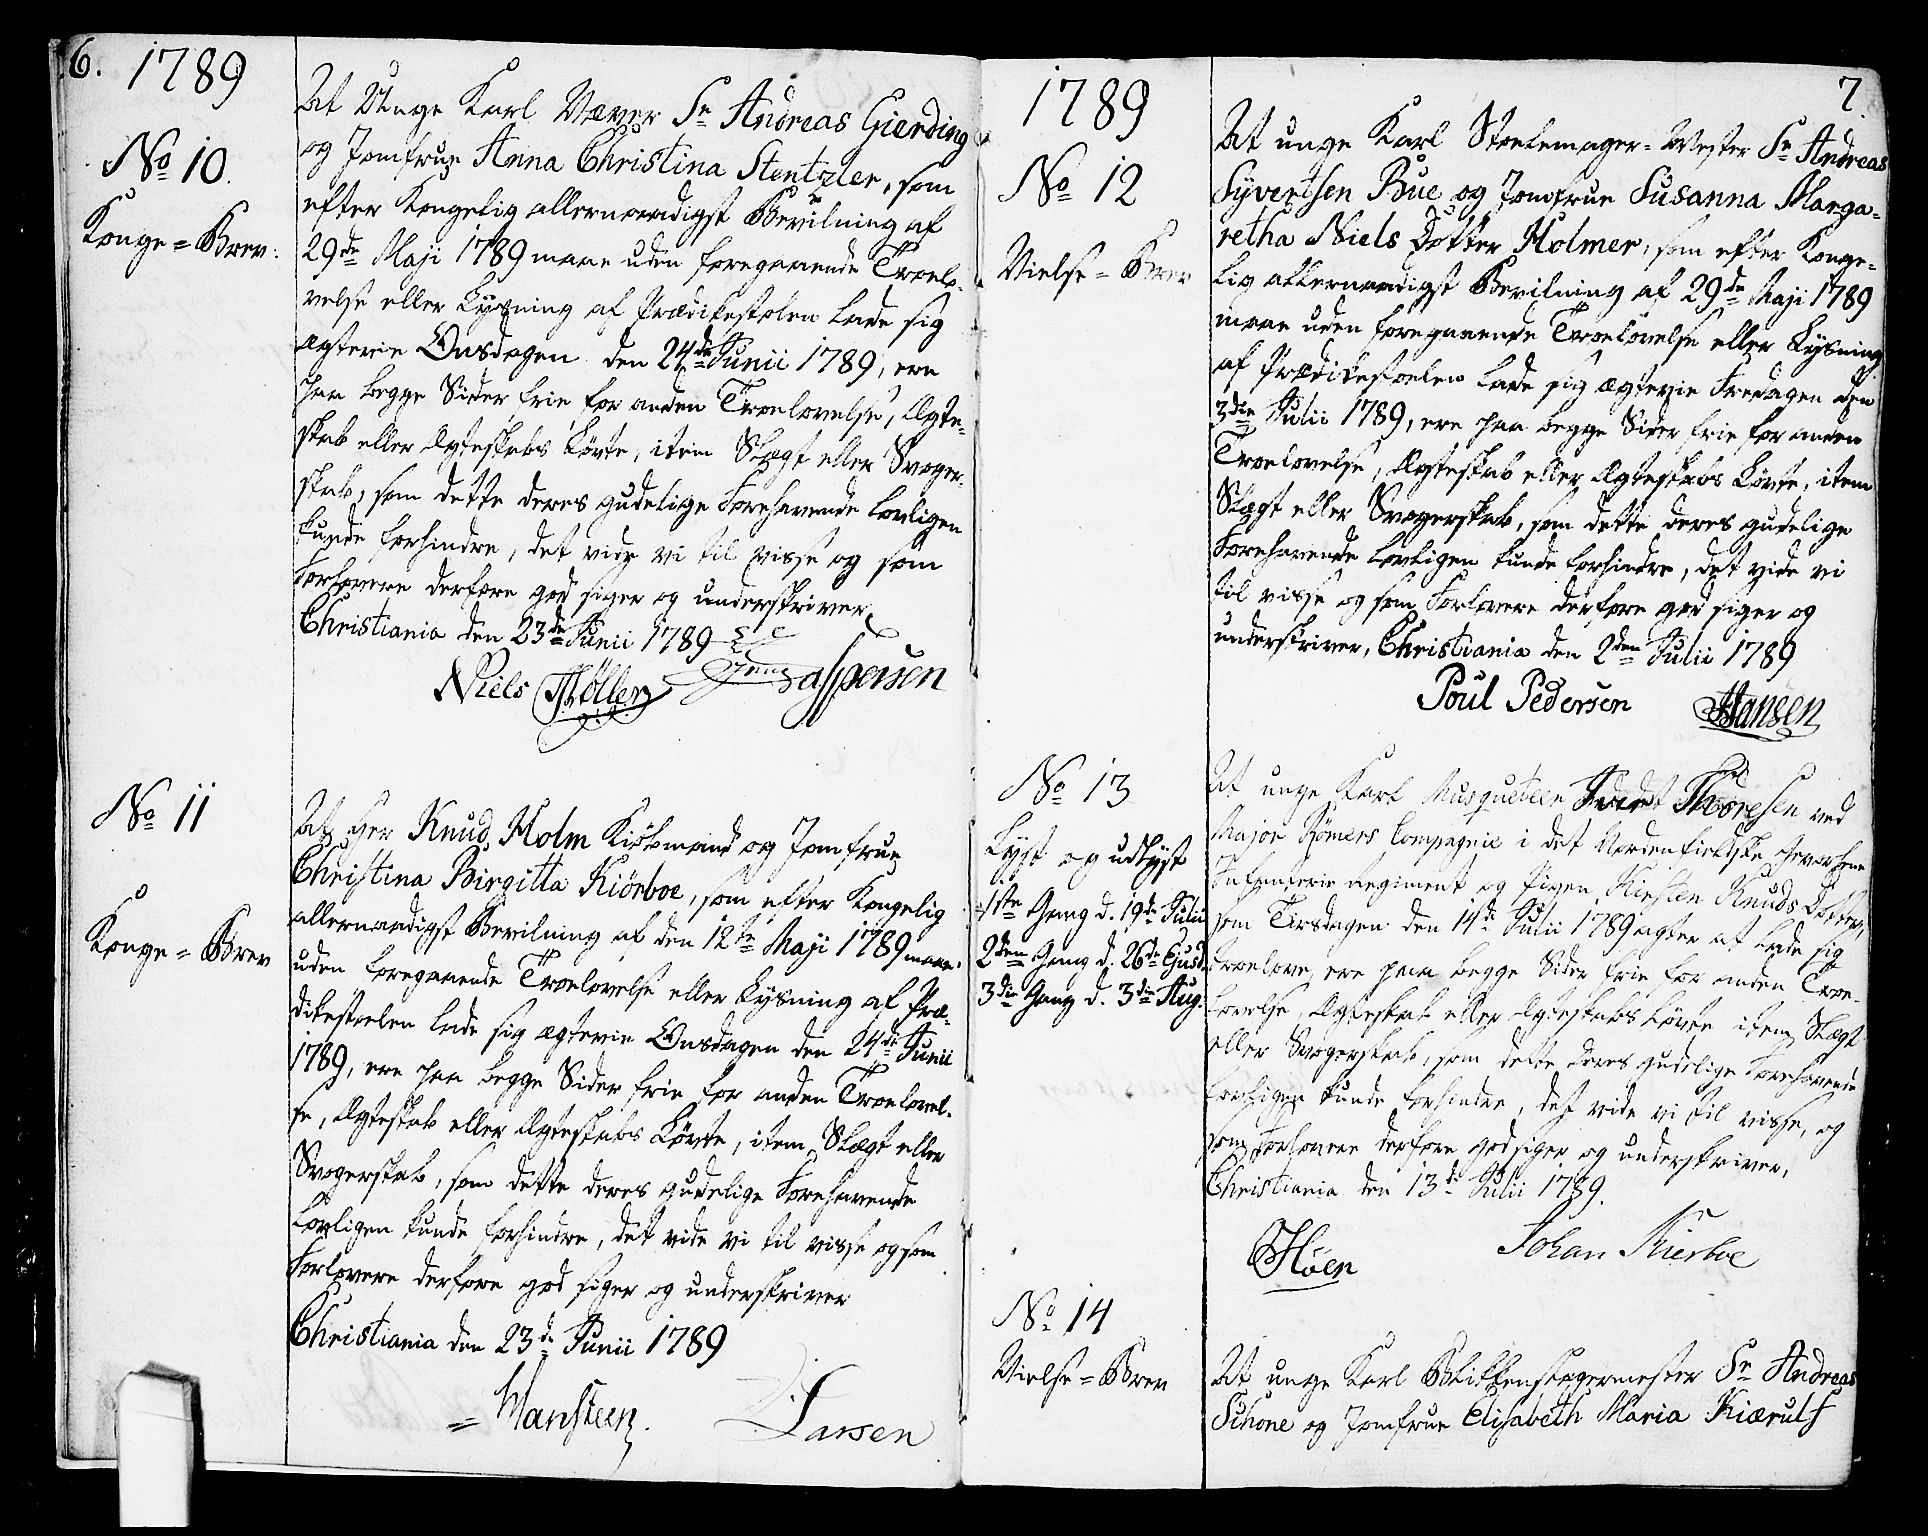 6.
1789
No 10.
Konge=Brev:
At Unge Karl Væver Sr Andreas Gierding
og Jomfrue Anna Christina Stentzler, som
efter Kongelig allernaadigst Bevilning af
29de Maji 1789 maae uden foregaaende Troelo-
velse eller Lysning af Prædikestolen lade sig
ægtevie Onsdagen den 24de Junii 1789, ere
paa begge Sider frie for anden Troelovelse, Ægte-
skab eller Ægteskabs Løvte, item Slægt eller Svoger-
skab, som dette deres gudelige Forehavende lovligen
kunde forhindre, det vide vi til visse og som
Forlovere derfore god siger og underskriver
Christiania den 23de Junii 1789
Niels Møller Jens Jaspersen
No 11
Konge=Brev
At Her Knud Holm Kiøbmand og Jomfrue
Christina Birgitta Kiörboe, som efter Kongelig
allernaadigst Bevilning af den 12te Maji 1789 maae
uden foregaaende Troelovelse eller Lysning af Præ-
dikestoelen lade sig ægtevie Onsdagen den 24de Junii
1789, ere paa begge Sider frie for anden Troelovel-
se, Ægteskab eller Ægteskabs Løvte, item Slægt eller
Svogerskab, som dette deres gudelige Forehavende
lovligen kunde forhindre, det vide vi til visse og som
Forlovere derfore god siger og underskriver
Christiania den 23de Junii 1789
Hansteen. Larsen
7.
1789
No 12
Vielse=Brev
At unge Karl Stoelemager=Mester Sr Andreas
Syvertsen Bue og Jomfrue Susanna Marga-
retha Niels Dotter Holmer, som efter Konge-
lig allernaadigst Bevilning af 29de Maji 1789
maae uden foregaaende Troelovelse eller Lysning
af Prædikestoelen lade sig ægtevie Fredagen den
3die Julii 1789, ere paa begge Sider frie for anden
Troelovelse, Ægteskab eller Ægteskabs Løvte, item
Slægt eller Svogerskab, som dette deres gudelige
Forehavende lovligen kunde forhindre, det vide vi
til visse og som Forlovere derfore god siger og
underskriver, Christiania den 2den Julii 1789
Poul Pedersen Hansen
No 13
Lyst og udlyst
1ste Gang d. 19de Julii
2den Gang d. 26de Ejusd.
3die Gang d. 3die Aug:
At unge Karl Musqueteer Thoresen ved
Major Römers Compagnie i det Nordenfieldske Gevorbene
Infanterie Regiment og Pigen Kirsten Knuds Dotter,
som Tirsdagen den 14de Julii 1789 agter at lade sig
Troelove, ere paa begge Sider frie for anden Troe-
lovelse, Ægteskab eller Ægteskabs Løvte item Slægt
eller Svogerskab, som dette deres gudelige Forehavende
lovligen kunde forhindre, det vide vi til visse, og
som Forlovere derfore god siger og underskriver,
Christiania den 13de Julii 1789.
Höen Johan Kierboe
No 14
Vielse=Brev
At unge Karl Blikkenslagermester Sr Andreas
Schone og Jomfrue Elisabeth Maria Kiærulf